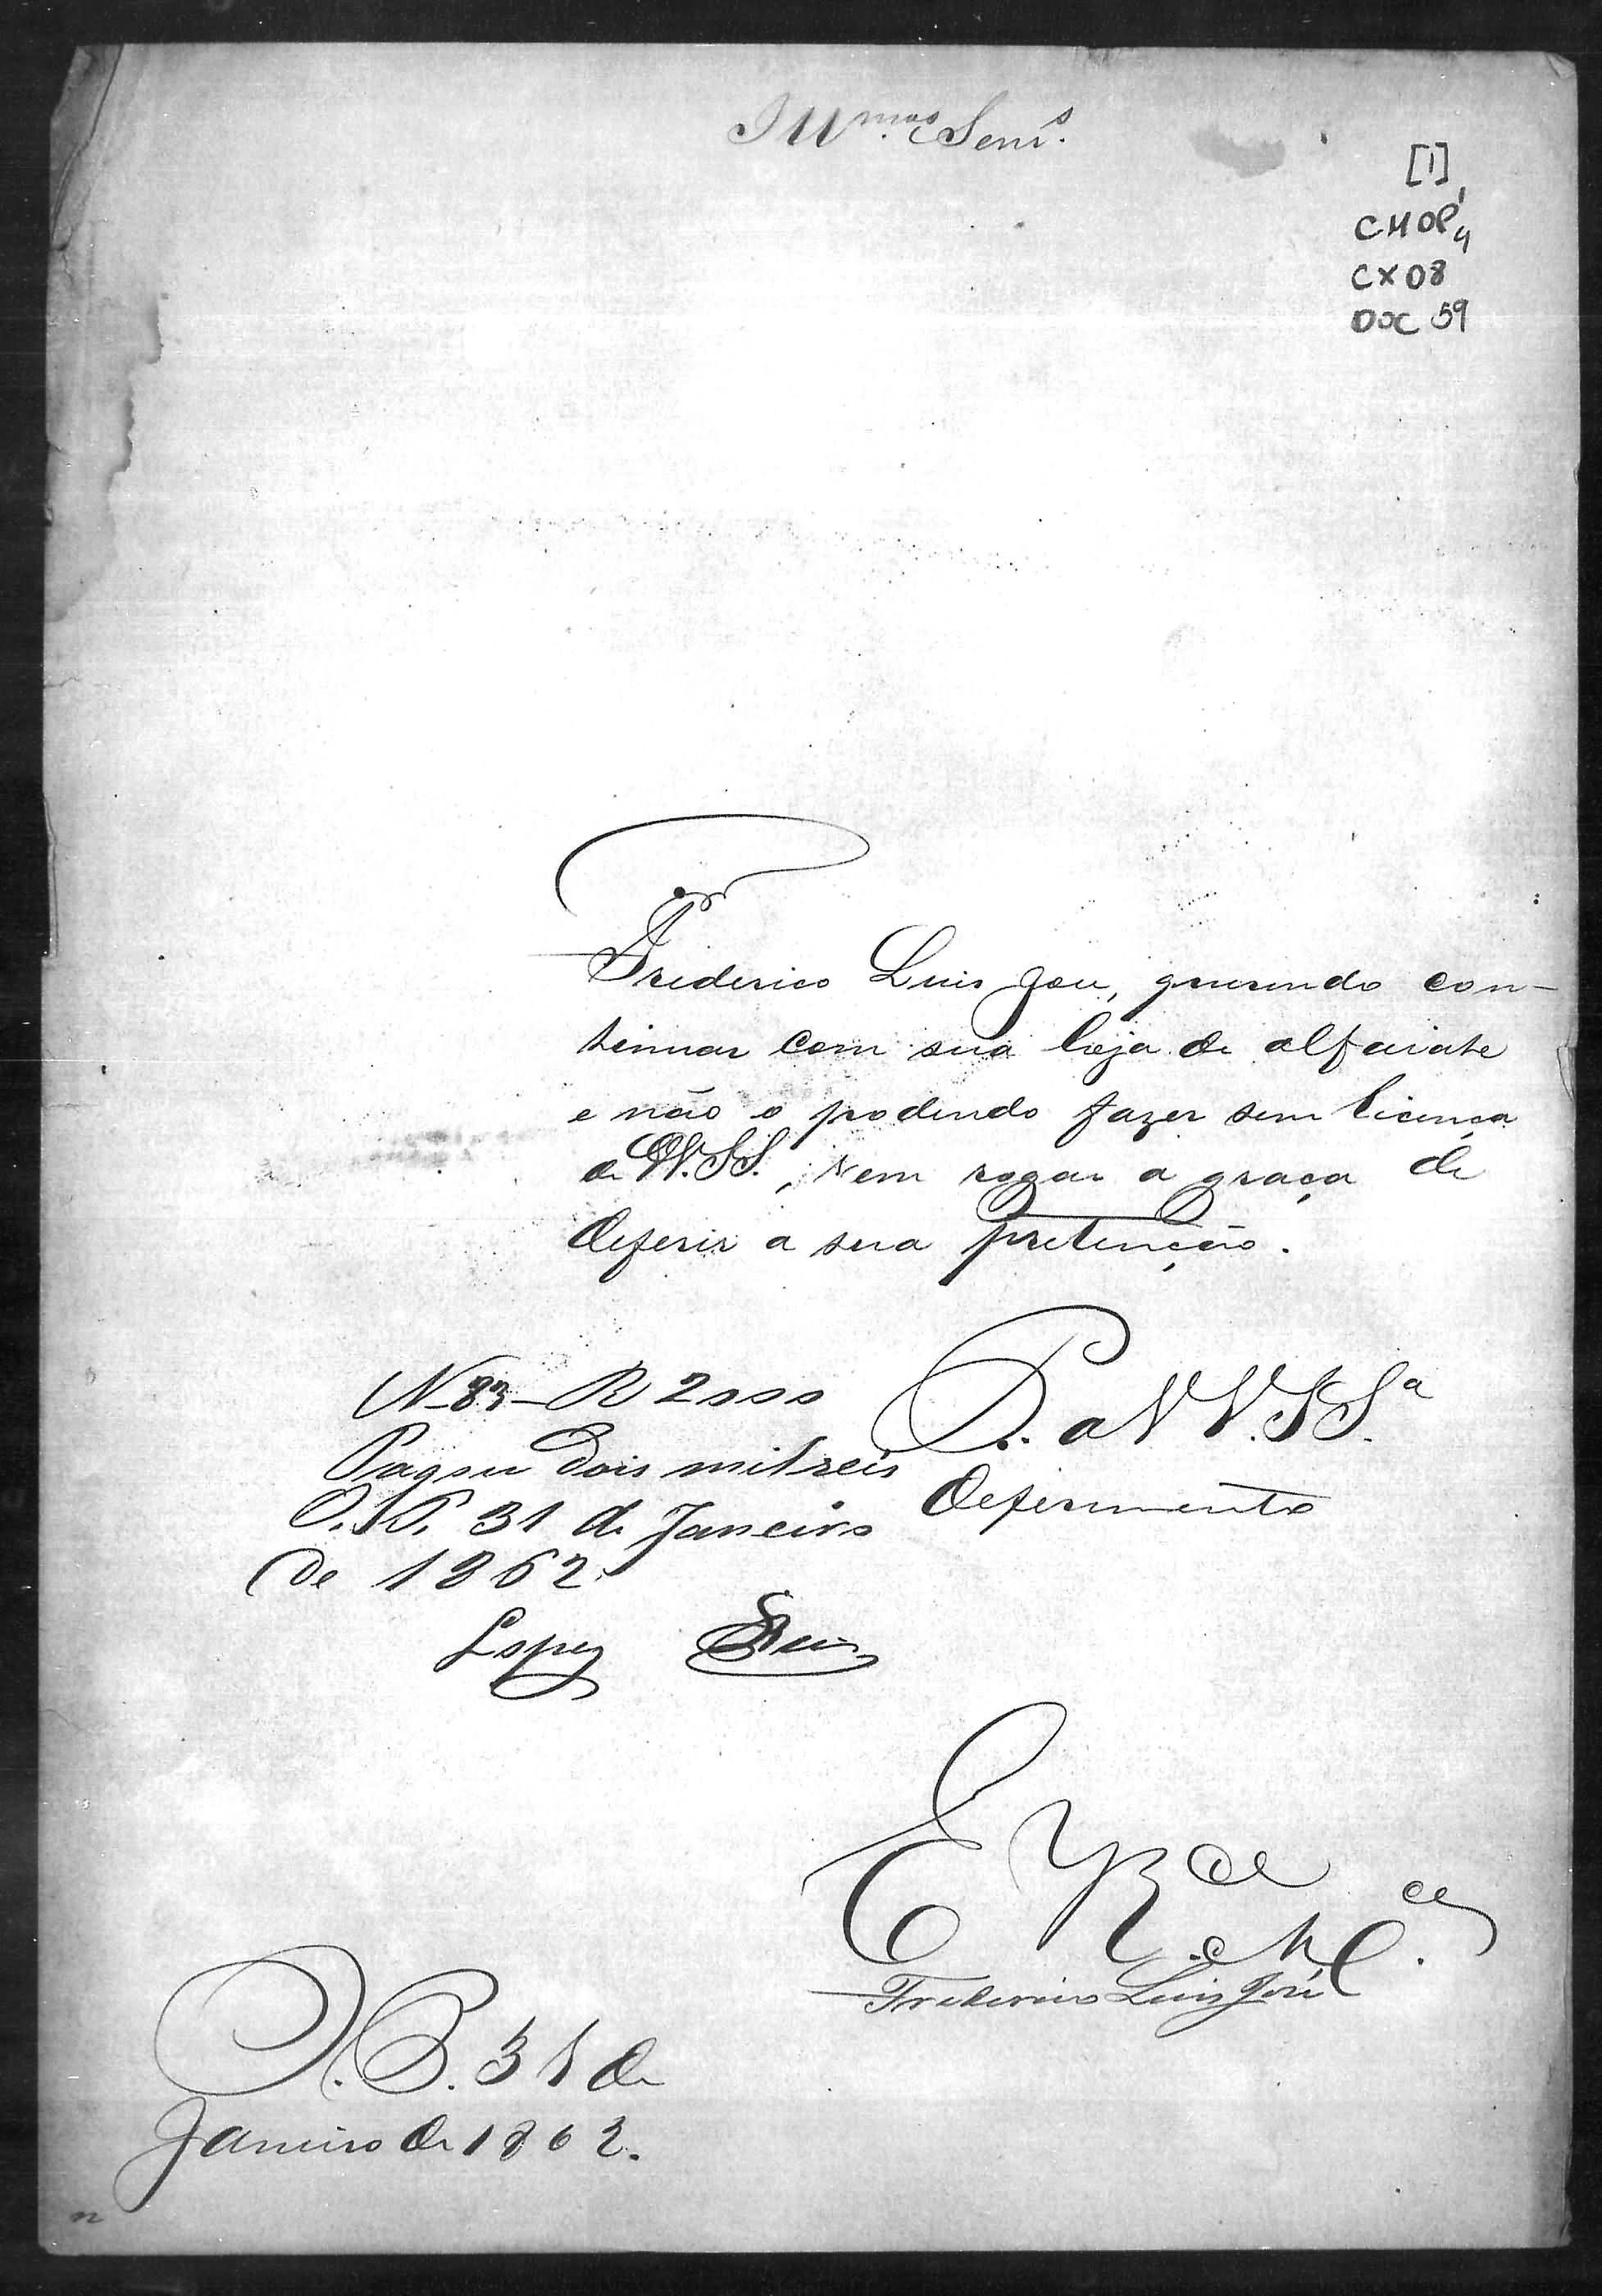 Illmos. Senrs.
[1]
CMOP
CX 08
DOC 59
Frederico Luis Jose, querendo con-
tinuar com sua loja de alfaiate
e não o podendo fazer sem licença
de VV. SS., vem rogar a graça de
deferir a sua pretenção.
P. a VV. SSª
deferimento
N 83 - R 2000
Pagou dois mil reis
O. P. 31 de Janeiro
de 1862.
Lopes
E R Mce
Frederico Luiz José
O. P. 31 de
Janeiro de 1862.